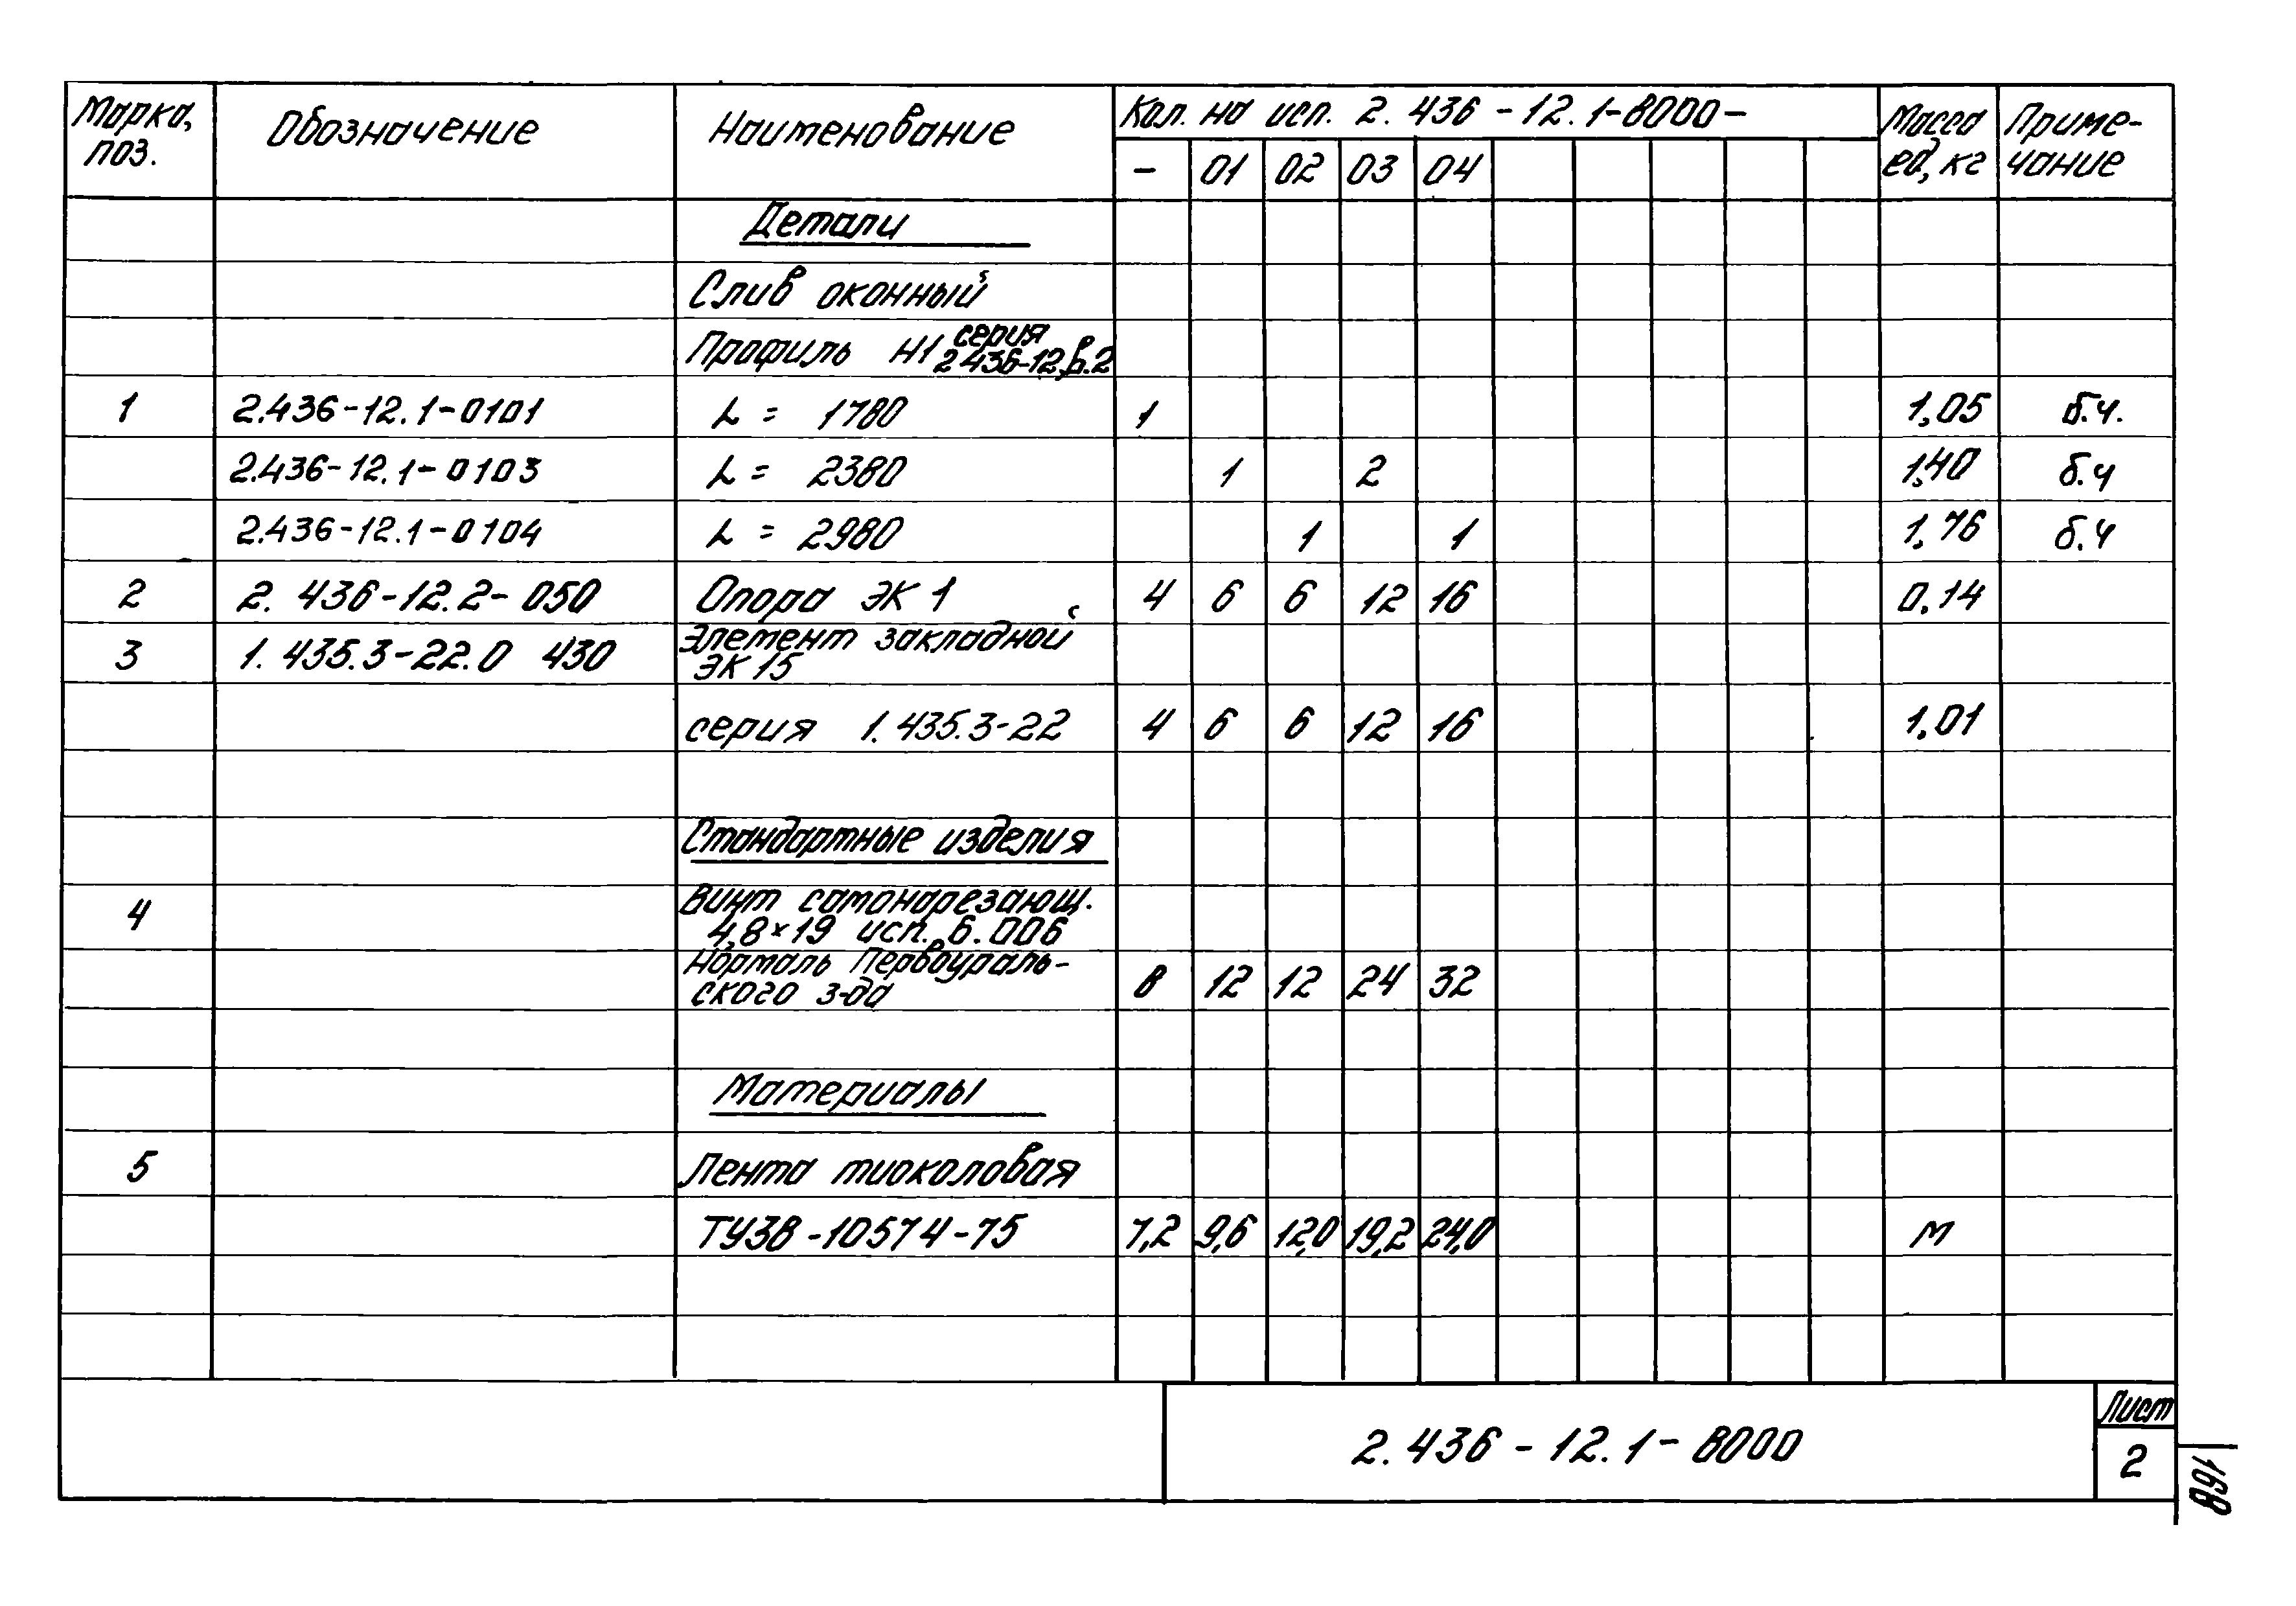 Марка, поз. Обозначение Наименование Кол. на исп. 2.436-12.1-8000- Масса ед, кг Приме-чание
- 01 02 03 04
Детали
Слив оконный
Профиль Н1 серия 2436-12, в.2
1 2.436-12.1-0101 L = 1780 1 1,05 б.ч.
2.436-12.1-0103 L = 2380 1 2 1,40 б.ч
2.436-12.1-0104 L = 2980 1 1 1,76 б.ч
2 2.436-12.2-050 Опора ЭК 1 4 6 6 12 16 0,14
3 1.435.3-22.0 430 Элемент закладной
ЭК 15
серия 1.435.3-22 4 6 6 12 16 1,01
Стандартные изделия
4 Винт самонарезающ.
4,8×19 исп. 6.006
Нормаль Первоураль-
ского з-да 8 12 12 24 32
Материалы
5 Лента тиоколовая
ТУ38-10574-75 7,2 9,6 12,0 19,2 24,0 м
2.436-12.1-8000
Лист
2
168